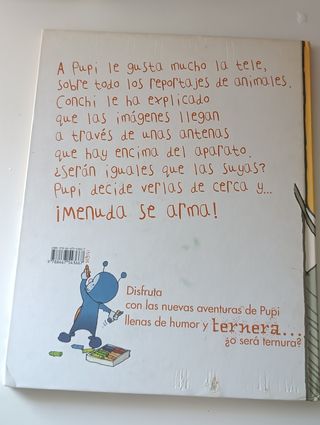 A Pupi le gusta mucho la tele,
sobre todo los reportajes de animales.
Conchi le ha explicado
que las imágenes llegan
a través de unas antenas
que hay encima del aparato.
¿Serán iguales que las suyas?
Pupi decide verlas de cerca y...
¡MENUDA SE ARMA!
Disfruta
con las nuevas aventuras de Pupi
llenas de humor y ternera....
¿o será ternura?